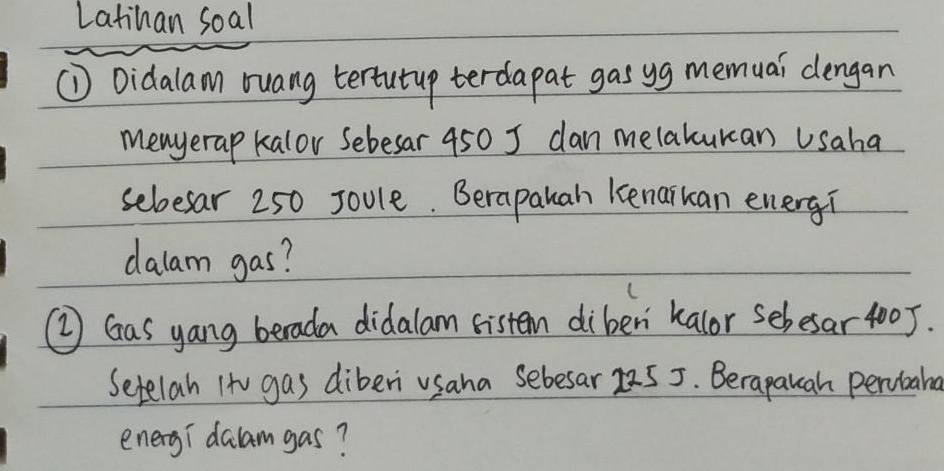 Latihan soal
① Didalam ruang tertutup terdapat gas yg memuai dengan
menyerap kalor sebesar 450 J dan melakukan usaha
sebesar 250 Joule. Berapakah kenaikan energi
dalam gas?
② Gas yang berada didalam sistem diberi kalor sebesar 400 J.
Setelah itu gas diberi usaha sebesar 225 J. Berapakah perubaha
energi dalam gas?